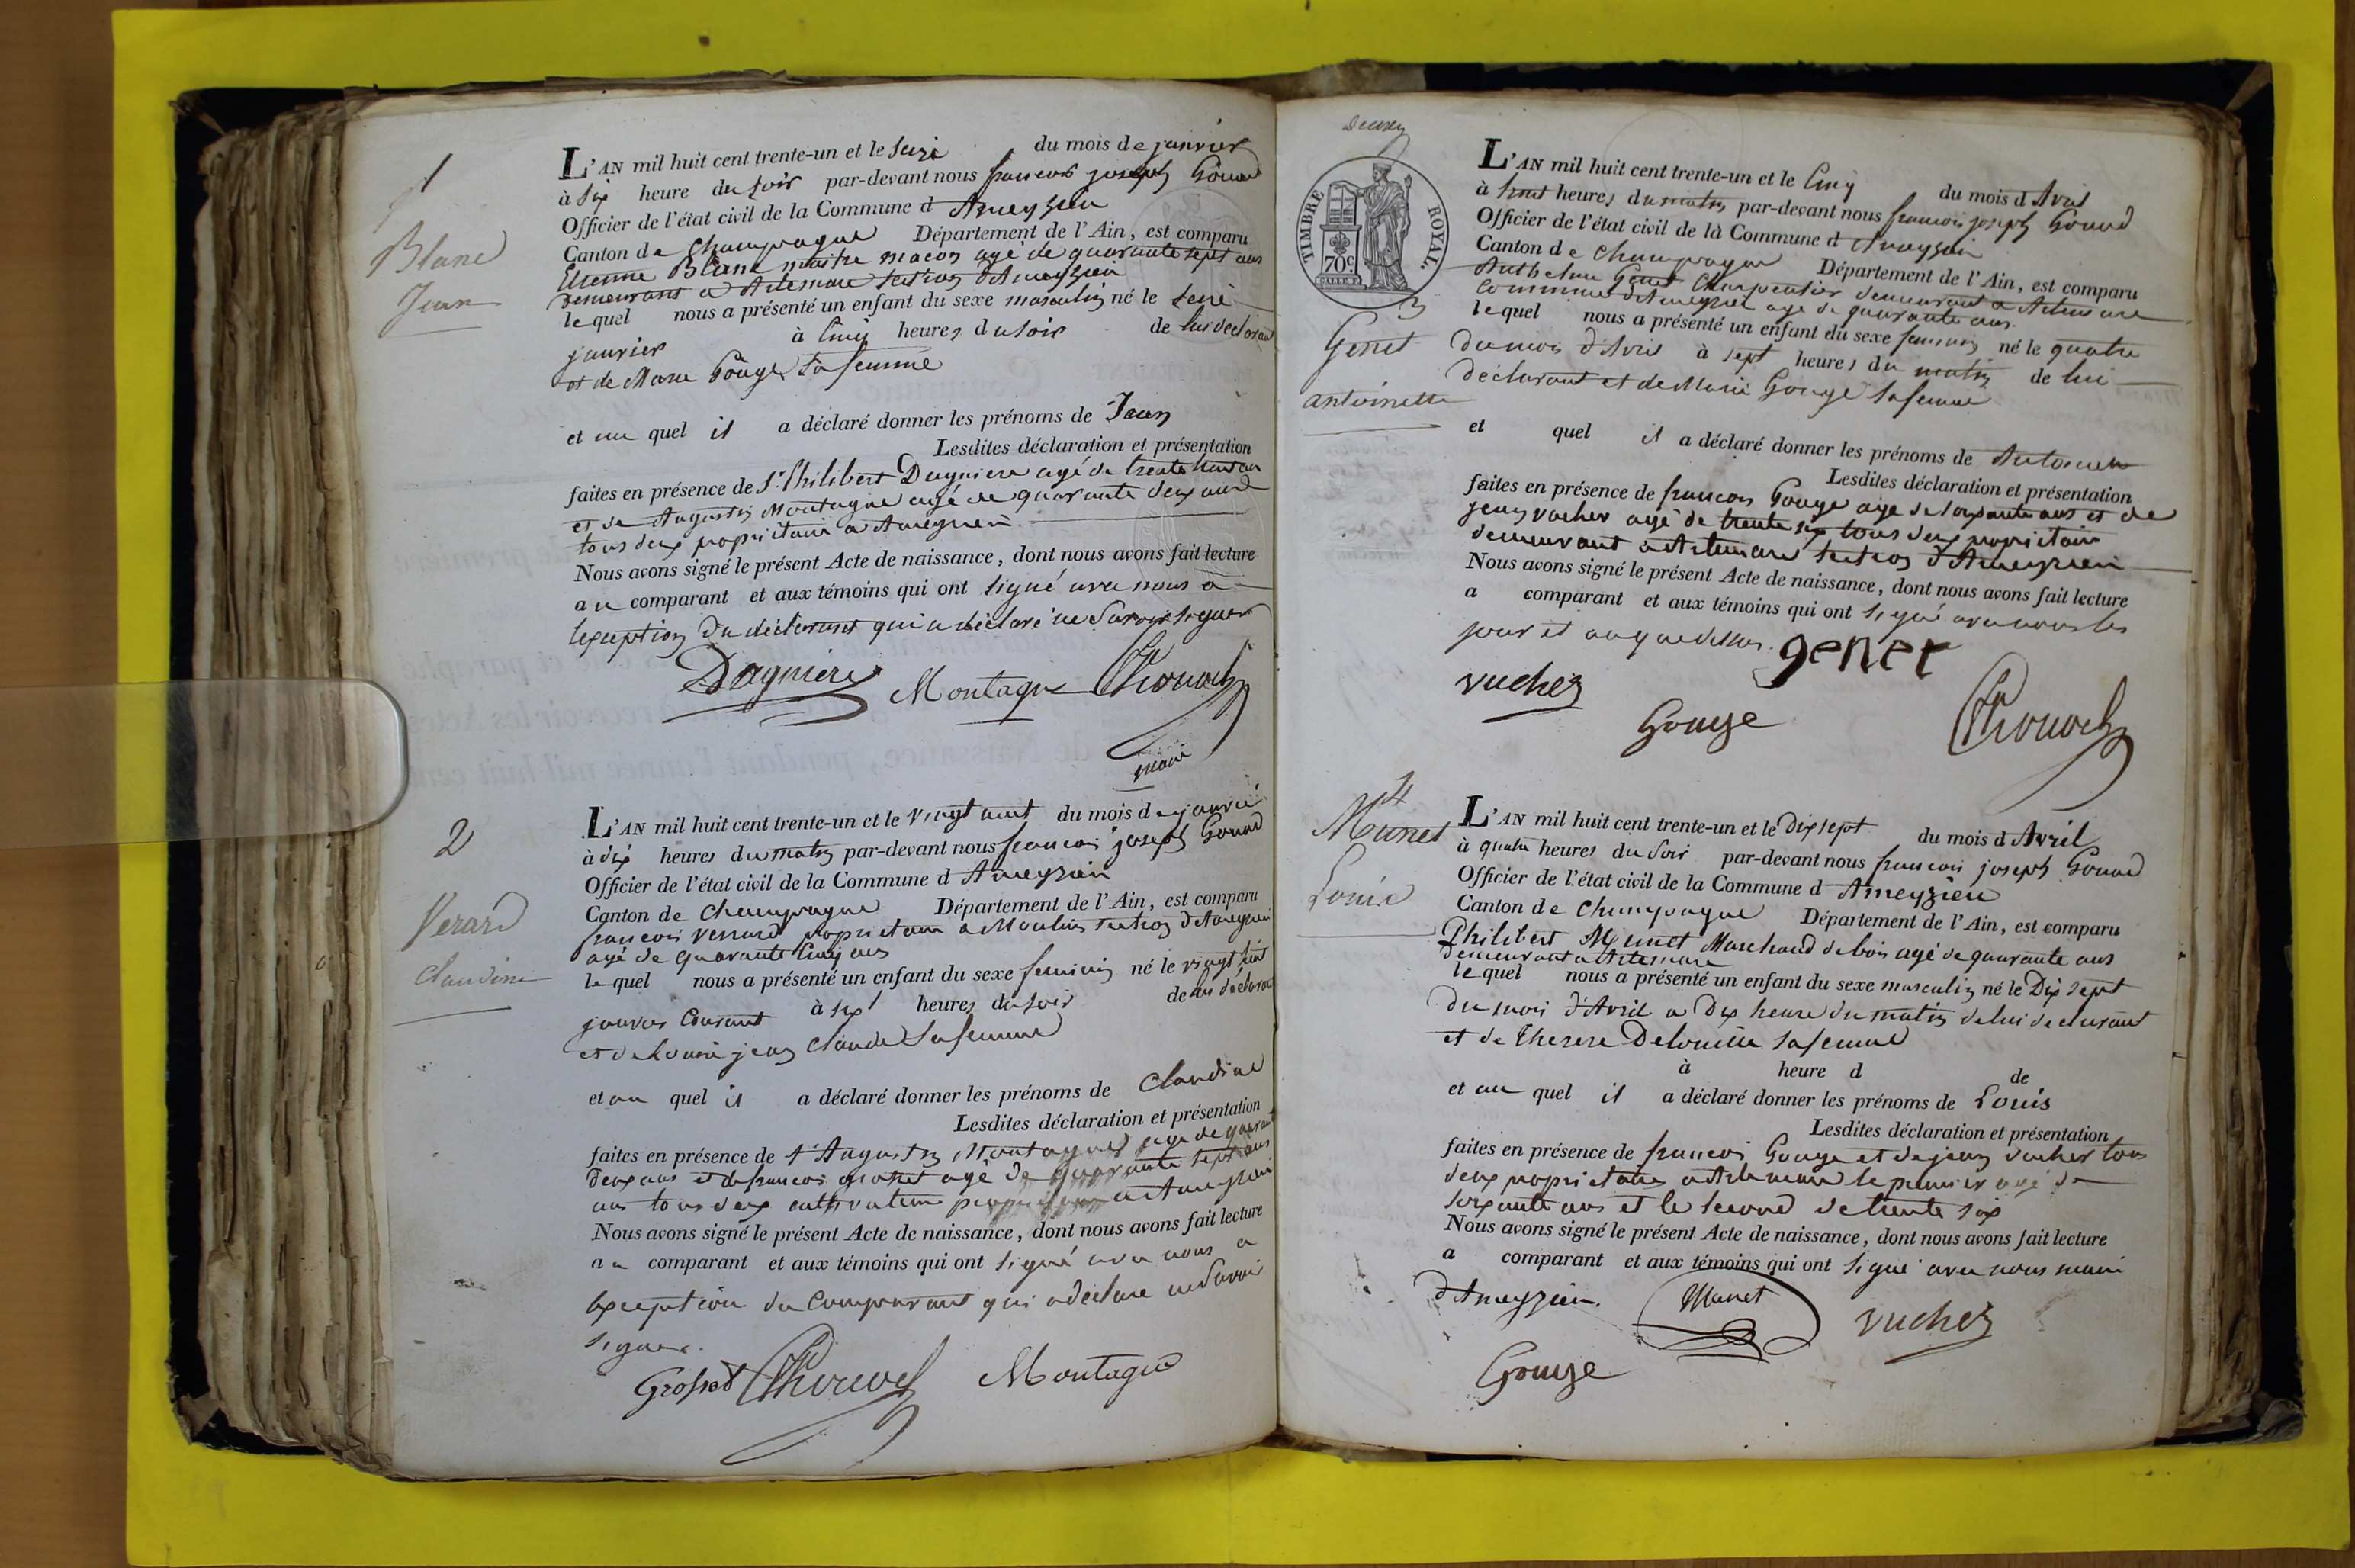 1
Blanc
Jean
L'AN mil huit cent trente-un et le seize du mois de janvier
à six heure du soir par-devant nous francois joseph Gonod
Officier de l'état civil de la Commune d Ameyzieu
Canton de Champagne Département de l'Ain, est comparu
Etienne Blanc maitre macon agé de quarante sept ans
demeurant a Artemare section d'Ameyzieu
lequel nous a présenté un enfant du sexe masculin né le seize
janvier à cinq heures du soir de lui declarant
et de Marie Gouge sa femme
et au quel il a déclaré donner les prénoms de Jean
Lesdites déclaration et présentation
faites en présence de Sr. Philibert Dagniere agé de trente huit ans
et de Augustin Montagne agé de quarante deux ans
tous deux proprietaire a Ameyzieu
Nous avons signé le présent Acte de naissance, dont nous avons fait lecture
au comparant et aux témoins qui ont signé avec nous a
lexception du déclarant qui a déclaré ne savoir signer
Dagniere Montagne
maire
2
Verard
Claudine
L'AN mil huit cent trente-un et le vingt neuf du mois de janvié
à dix heures du matin par-devant nous francois joseph Gonod
Officier de l'état civil de la Commune d Ameyzieu
Canton de Champagne Département de l'Ain, est comparu
francois Verrard proprietaire a Moulin section d'Ameyzieu
agé de quarante cinq ans
lequel nous a présenté un enfant du sexe feminin né le vingt huit
janvier courant à sept heures du soir de lui déclarant
et de Louise jean Claude sa femme
et au quel il a déclaré donner les prénoms de Claudine
Lesdites déclaration et présentation
faites en présence de Sr Augustin Montagne agé de quarante
deux ans et de francois grosset agé de quarante sept ans
ans tous deux cultivateur a Ameyzieu
Nous avons signé le présent Acte de naissance, dont nous avons fait lecture
au comparant et aux témoins qui ont signé avec nous a
lexception du comparant qui a déclaré ne savoir
signer.
Grosset Montagne
TIMBRE ROYAL.
70c
Genet
antoinette
L'AN mil huit cent trente-un et le cinq du mois d Avril
à huit heures du matin par-devant nous francois joseph Gonod
Officier de l'état civil de la Commune d Ameyzieu
Canton de Champagne Département de l'Ain, est comparu
Anthelme Genet Charpentier demeurant a Artemare
commune d'Ameyzieu agé de quarante ans
lequel nous a présenté un enfant du sexe feminin né le quatre
du mois d'Avril à sept heures du matin de lui
déclarant et de Marie Gouge sa femme
et quel il a déclaré donner les prénoms de Antoinette
Lesdites déclaration et présentation
faites en présence de francois Gouge agé de soixante ans et de
jean vucher agé de trente six tous deux proprietaire
demeurant a Artemare section d'Ameyzieu
Nous avons signé le présent Acte de naissance, dont nous avons fait lecture
a comparant et aux témoins qui ont signé avec nous les
jour et an que dessus.
genet
vucher
Gouge
4
Munet
Louis
L'AN mil huit cent trente-un et le dix sept du mois d Avril
à quatre heures du soir par-devant nous francois joseph Gonod
Officier de l'état civil de la Commune d Ameyzieu
Canton de Champagne Département de l'Ain, est comparu
Philibert Munet Marchand de bois agé de quarante ans
demeurant a Artemare
lequel nous a présenté un enfant du sexe masculin né le Dix sept
du mois d'Avril a dix heure du matin de lui declarant
et de Therese sa femme
à heure d de
et au quel il a déclaré donner les prénoms de Louis
Lesdites déclaration et présentation
faites en présence de francois Gouge et de jean vucher tous
deux proprietaire a Artemare le premier agé de
soixante ans et le second de trente six
Nous avons signé le présent Acte de naissance, dont nous avons fait lecture
a comparant et aux témoins qui ont signé avec nous maire
d'Ameyzieu. Munet vucher
Gouge